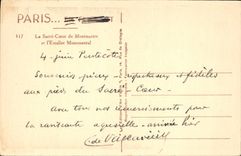 PARIS...
517 Le Sacré-Cœur de Montmartre
et l'Escalier Monumental
4 juin Pentecôte
Souvenirs, prières respectueux et fidèles
aux pieds du Sacré-Cœur
Avec tous nos remerciements pour
la ravissante aquarelle arrivée hier